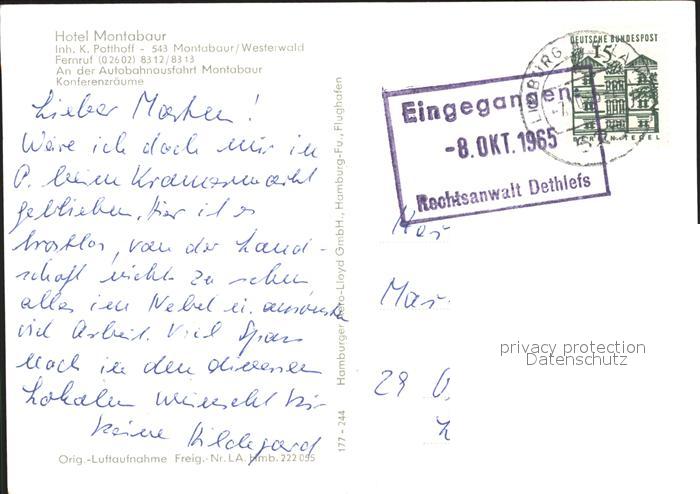 Hotel Montabaur
Inh. K. Potthoff - 543 Montabaur/Westerwald
Fernruf (02602) 8312/8313
An der Autobahnausfahrt Montabaur
Konferenzräume
Lieber Marten!
Wäre ich doch nur in
O. beim Kramermarkt
geblieben, hier ist es
trostlos, von der Land-
schaft nichts zu sehen,
alles im Nebel u. ansonsten
viel Arbeit. Viel Spass
noch in den diversen
Lokalen wünscht Dir
Deine Hildegard
Orig.-Luftaufnahme Freig.-Nr. LA. Hmb. 222 055
177 - 244 Hamburger Aero-Lloyd GmbH., Hamburg-Fu., Flughafen
DEUTSCHE BUNDESPOST
15
TEGEL
LIMBURG
Eingegangen:
-8. OKT. 1965
Rechtsanwalt Dethlefs
Mar
29 O
privacy protection
Datenschutz